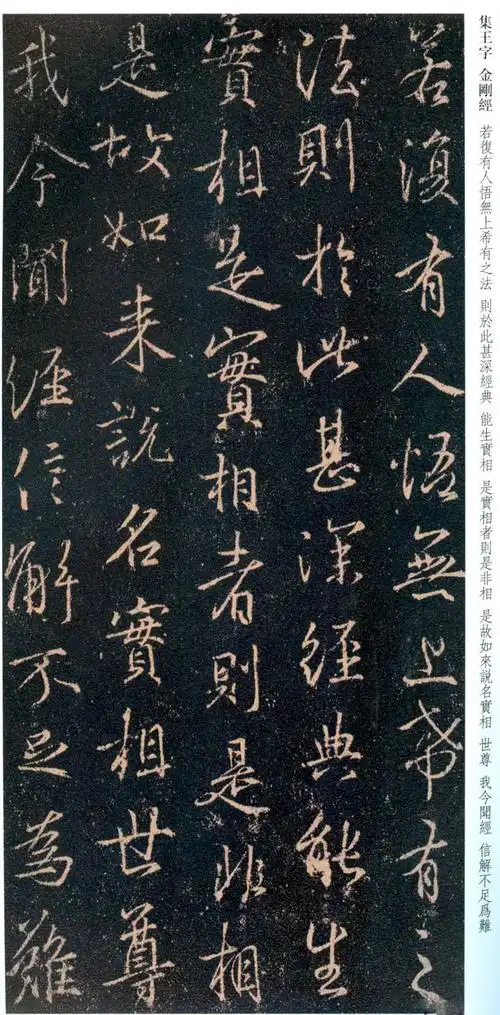 集王字 金剛經 若復有人悟無上希有之法 則於此甚深經典 能生實相 是實相者則是非相 是故如來說名實相 世尊 我今聞經 信解不足爲難
若復有人悟無上希有之
法則於此甚深經典能生
實相是實相者則是非相
是故如来說名實相世尊
我今聞經信解不足為難